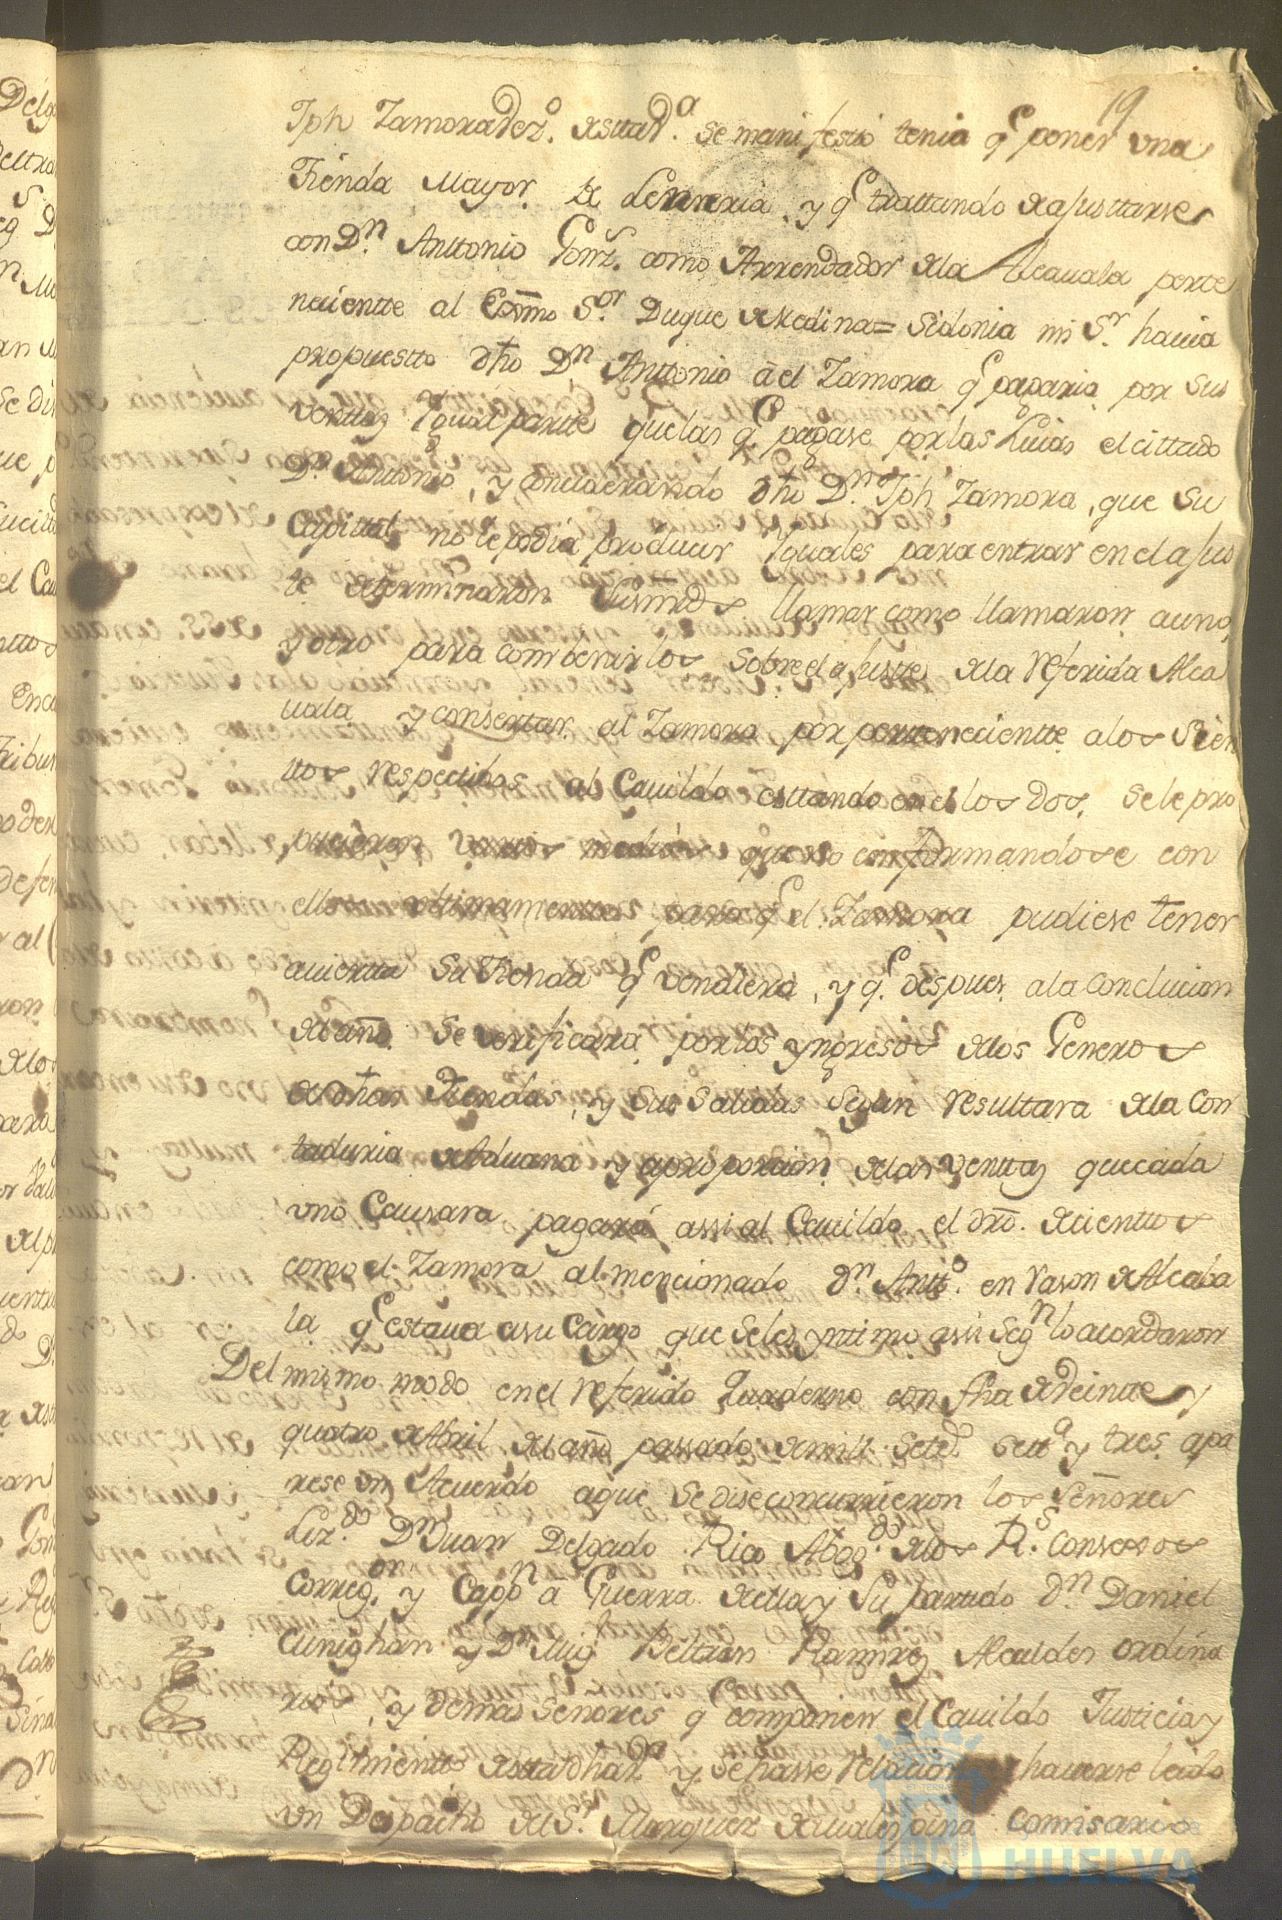 19
Jph Zamora Vez.º de esta V.ª se manifestó tenia q.e poner una
Tienda Mayor de Lenzeria, y q.e trattando de ajusttarse
con D.n Anttonio Gonz.s como Arrendador de la Alcauala perte
necientte al Exmo S.or Duque de Medina = Sidonia mi S.r hauia
propuestto dho D.n Anttonio à el Zamora q.e pagaria por sus
venttas Ygual partte que las q.e pagase por las suias el cittado
D.n Antonio, y conciderando dho D.n Jph Zamora, que su
Capittal no le podia producir Yguales para entrar en el ajus
te determinaron sus mrds llamar como llamaron a uno,
y otro para combenirlos sobre el ajuste de la referida Alca
uala y consertar al Zamora por pertenecientte a los Sien
ttos respectibos al Cauildo esttando en el los dos, se le pro
pucieron varios medios que no conformandose con
ellos ultimamente para q.e el Zamora pudiese tener
auierta su Tienda q.e vendiera, y q.e despues a la conclucion
del año se verificara por los yngresos de los Generos
de dhas Tiendas, y sus salidas segun resultara de la Con
taduria de Aduana y a proporcion de las venttas que cada
uno Causara, pagará assi al Cauildo el dro. de cienttos
como el Zamora al mencionado D.n Antt.º en rason de Alcaba
la q.e estaua a su cargo que se les yntimo assi seg.n lo acordaron
Del mismo modo en el referido quaderno con fha de veintte y
quatro de Abril del año passado de mill Setes.º sett.ª y tres apa
rese un Acuerdo a que se dise concurrieron los Señores
Liz.do D.n Juan Delgado Rico Abog.do de los R.s Consexos
Correg.or y Capp.n à Guerra de ella y su partido D.n Daniel
Cunighan y D.n Mig.l Beltran Ramires Alcaldes ordina
rios, y demas Señores q.e componen el Cauildo Justicia y
Regimientto de esta dha V.ª y se hasse relacion hauerse leido
un Despacho del S.r Marques de comisario
HUELVA